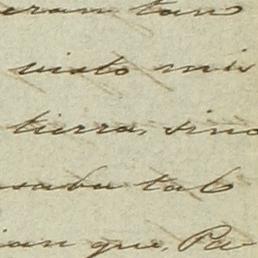 eran tan
visto mis
tierra, sino
saba tal
ian que, Pa